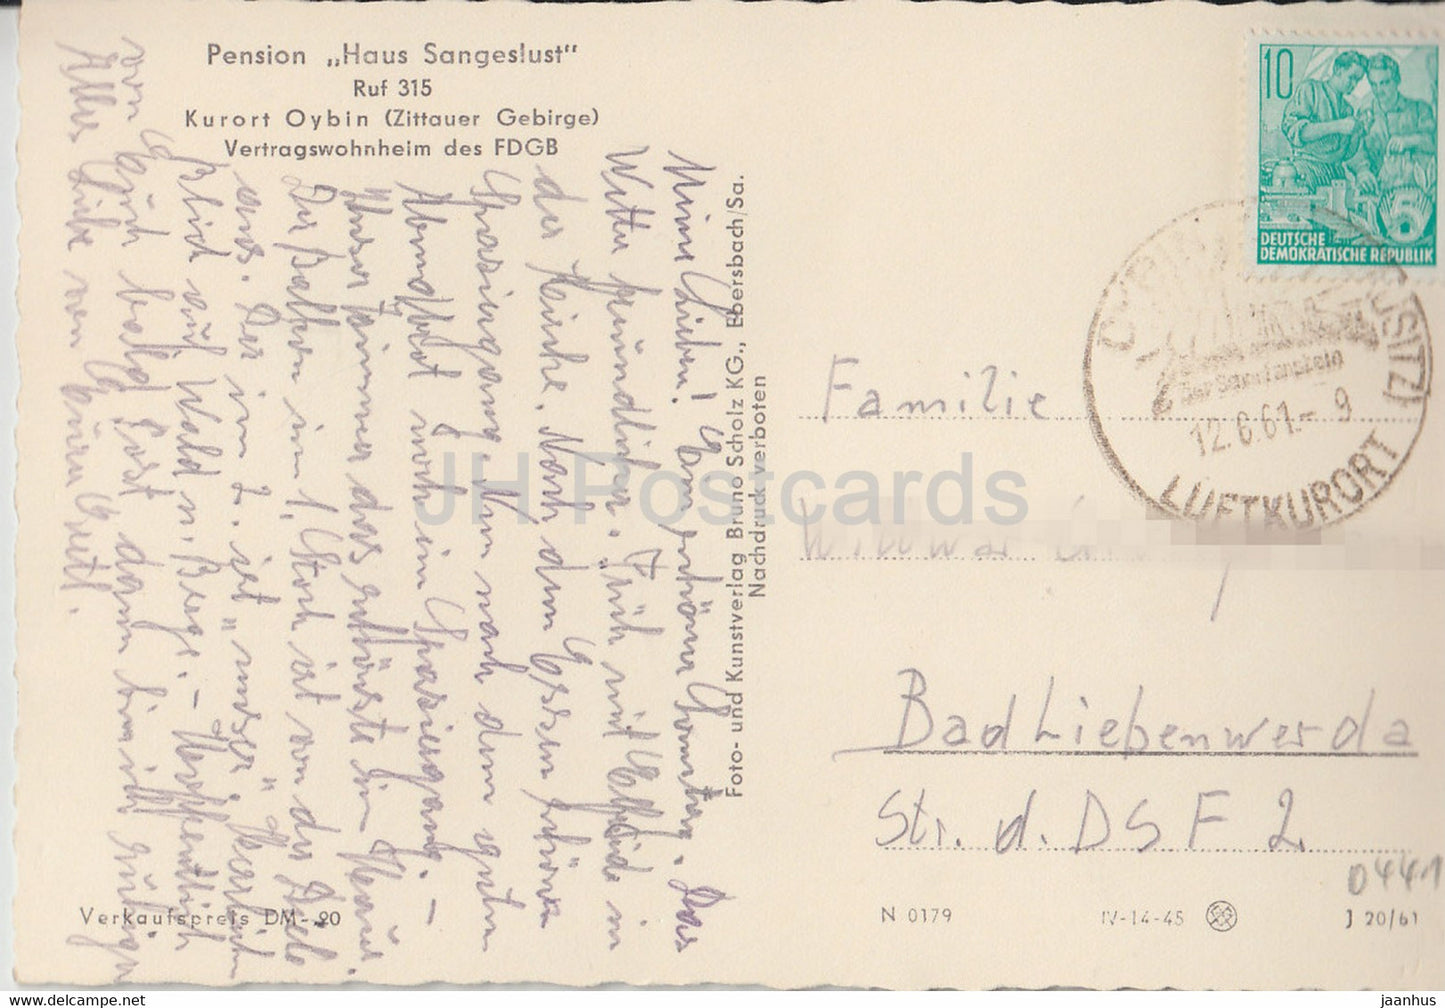 Pension „Haus Sangeslust"
Ruf 315
Kurort Oybin (Zittauer Gebirge)
Vertragswohnheim des FDGB
Meine Lieben! Ein schöner Sonntag. Das
Wetter freundlich. Früh mit in
der Kirche. Nach dem Essen schönen
Spaziergang. Nun nach dem
Abendbrot noch ein Spaziergang. –
Unser Zimmer das schönste im Haus.
Der Balkon im 1. Stock ist von der Diele
aus. Der im 2. ist „unser".
Blick auf Wald u. Berge. – Hoffentlich
von Euch bald Post, dann bin ich ruhig.
Alles Liebe von Eurer Gretl.
Foto- und Kunstverlag Bruno Scholz KG., Ebersbach/Sa.
Nachdruck verboten
10
DEUTSCHE
DEMOKRATISCHE REPUBLIK
OYBIN
12.6.61.- 9
LUFTKURORT
Familie
Bad Liebenwerda
Str. d. DSF 2.
0441
Verkaufspreis DM -.20
N 0179
IV-14-45
J 20/61
JH Postcards
www.delcampe.net
jaanhus